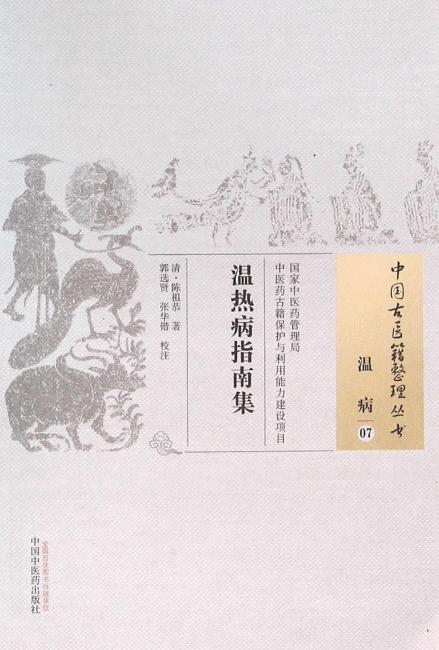 中国古医籍整理丛书
温病
07
国家中医药管理局
中医药古籍保护与利用能力建设项目
温热病指南集
清·陈祖恭 著
郭选贤 张华锴 校注
全国百佳图书出版单位
中国中医药出版社